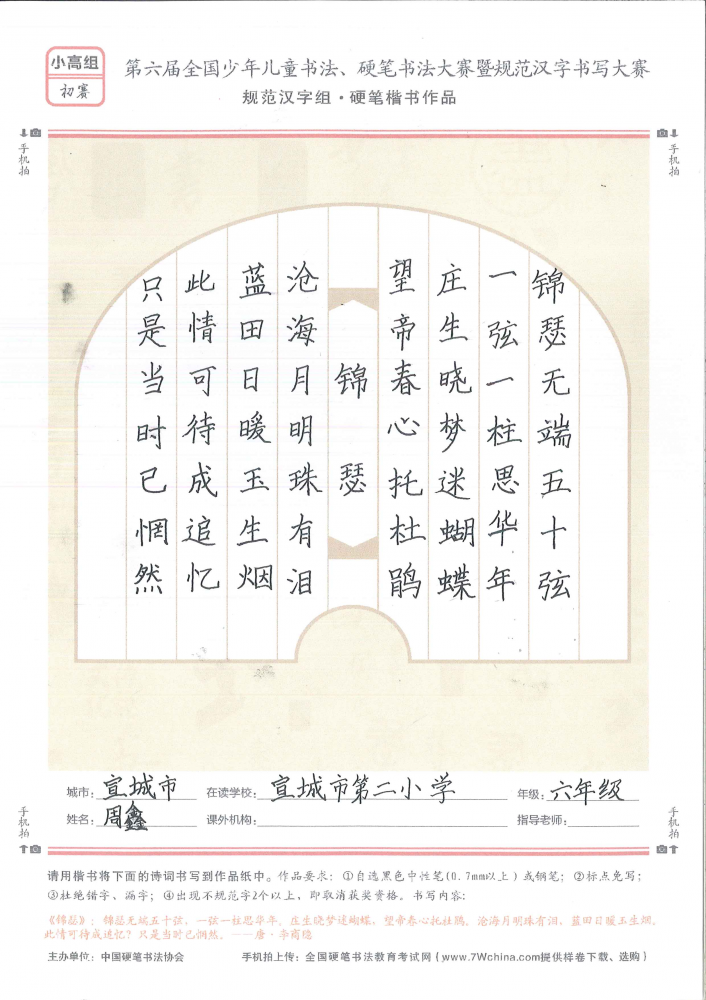 小高组
初赛
第六届全国少年儿童书法、硬笔书法大赛暨规范汉字书写大赛
规范汉字组·硬笔楷书作品
手机拍
手机拍
锦瑟无端五十弦
一弦一柱思华年
庄生晓梦迷蝴蝶
望帝春心托杜鹃
锦瑟
沧海月明珠有泪
蓝田日暖玉生烟
此情可待成追忆
只是当时已惘然
城市：宣城市 在读学校：宣城市第二小学 年级：六年级
姓名：周鑫 课外机构： 指导老师：
手机拍
手机拍
请用楷书将下面的诗词书写到作品纸中。作品要求：①自选黑色中性笔(0.7mm以上)或钢笔；②标点免写；
③杜绝错字、漏字；④出现不规范字2个以上，即取消获奖资格。书写内容：
《锦瑟》：锦瑟无端五十弦，一弦一柱思华年。庄生晓梦迷蝴蝶，望帝春心托杜鹃。沧海月明珠有泪，蓝田日暖玉生烟。
此情可待成追忆？只是当时已惘然。——唐·李商隐
主办单位：中国硬笔书法协会 手机拍上传：全国硬笔书法教育考试网（www.7Wchina.com提供样卷下载、选购）